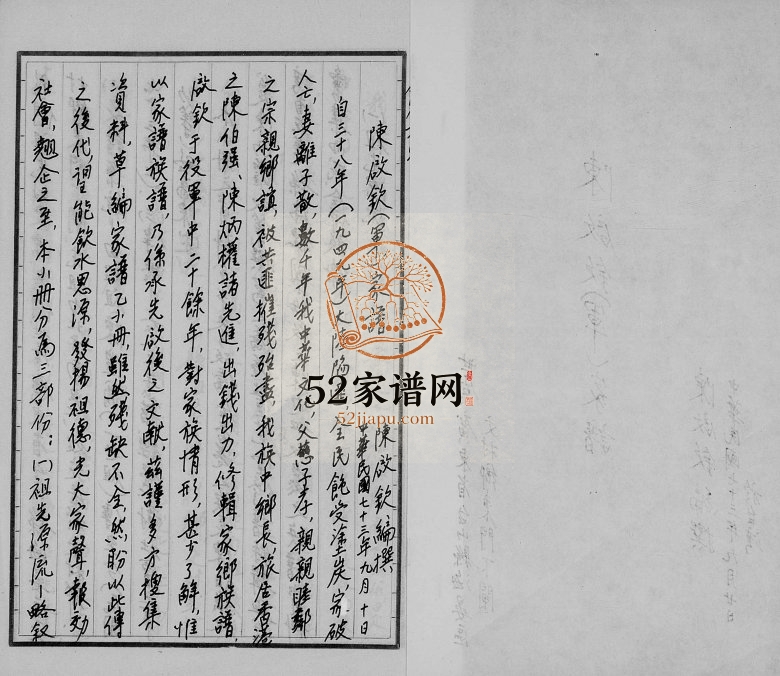 陳啟欽(軍)家譜
陳啟欽編撰
中華民國七十三年九月十日
自三十八年(一九四九年)大陸陷 全民飽受塗炭,家破
人亡,妻離子散,數千年我中華文化,父慈子孝,親親睦鄰
之宗親鄉誼,被共匪摧殘殆盡,我族中鄉長,旅居香港
之陳伯强、陳炳權諸先進,出錢出力,修輯家鄉族譜,
啟欽于役軍中二十餘年,對家族情形,甚少了解,惟
以家譜族譜,乃係承先啟後之文獻,茲謹多方搜集
資料,草編家譜乙小冊,雖然殘缺不全然盼以此傳
之後代,望能飲水思源,發揚祖德,光大家聲,報効
社會,翹企之至,本小冊分為三部份:(一)祖先源流—略叙
52家谱网
52jiapu.com